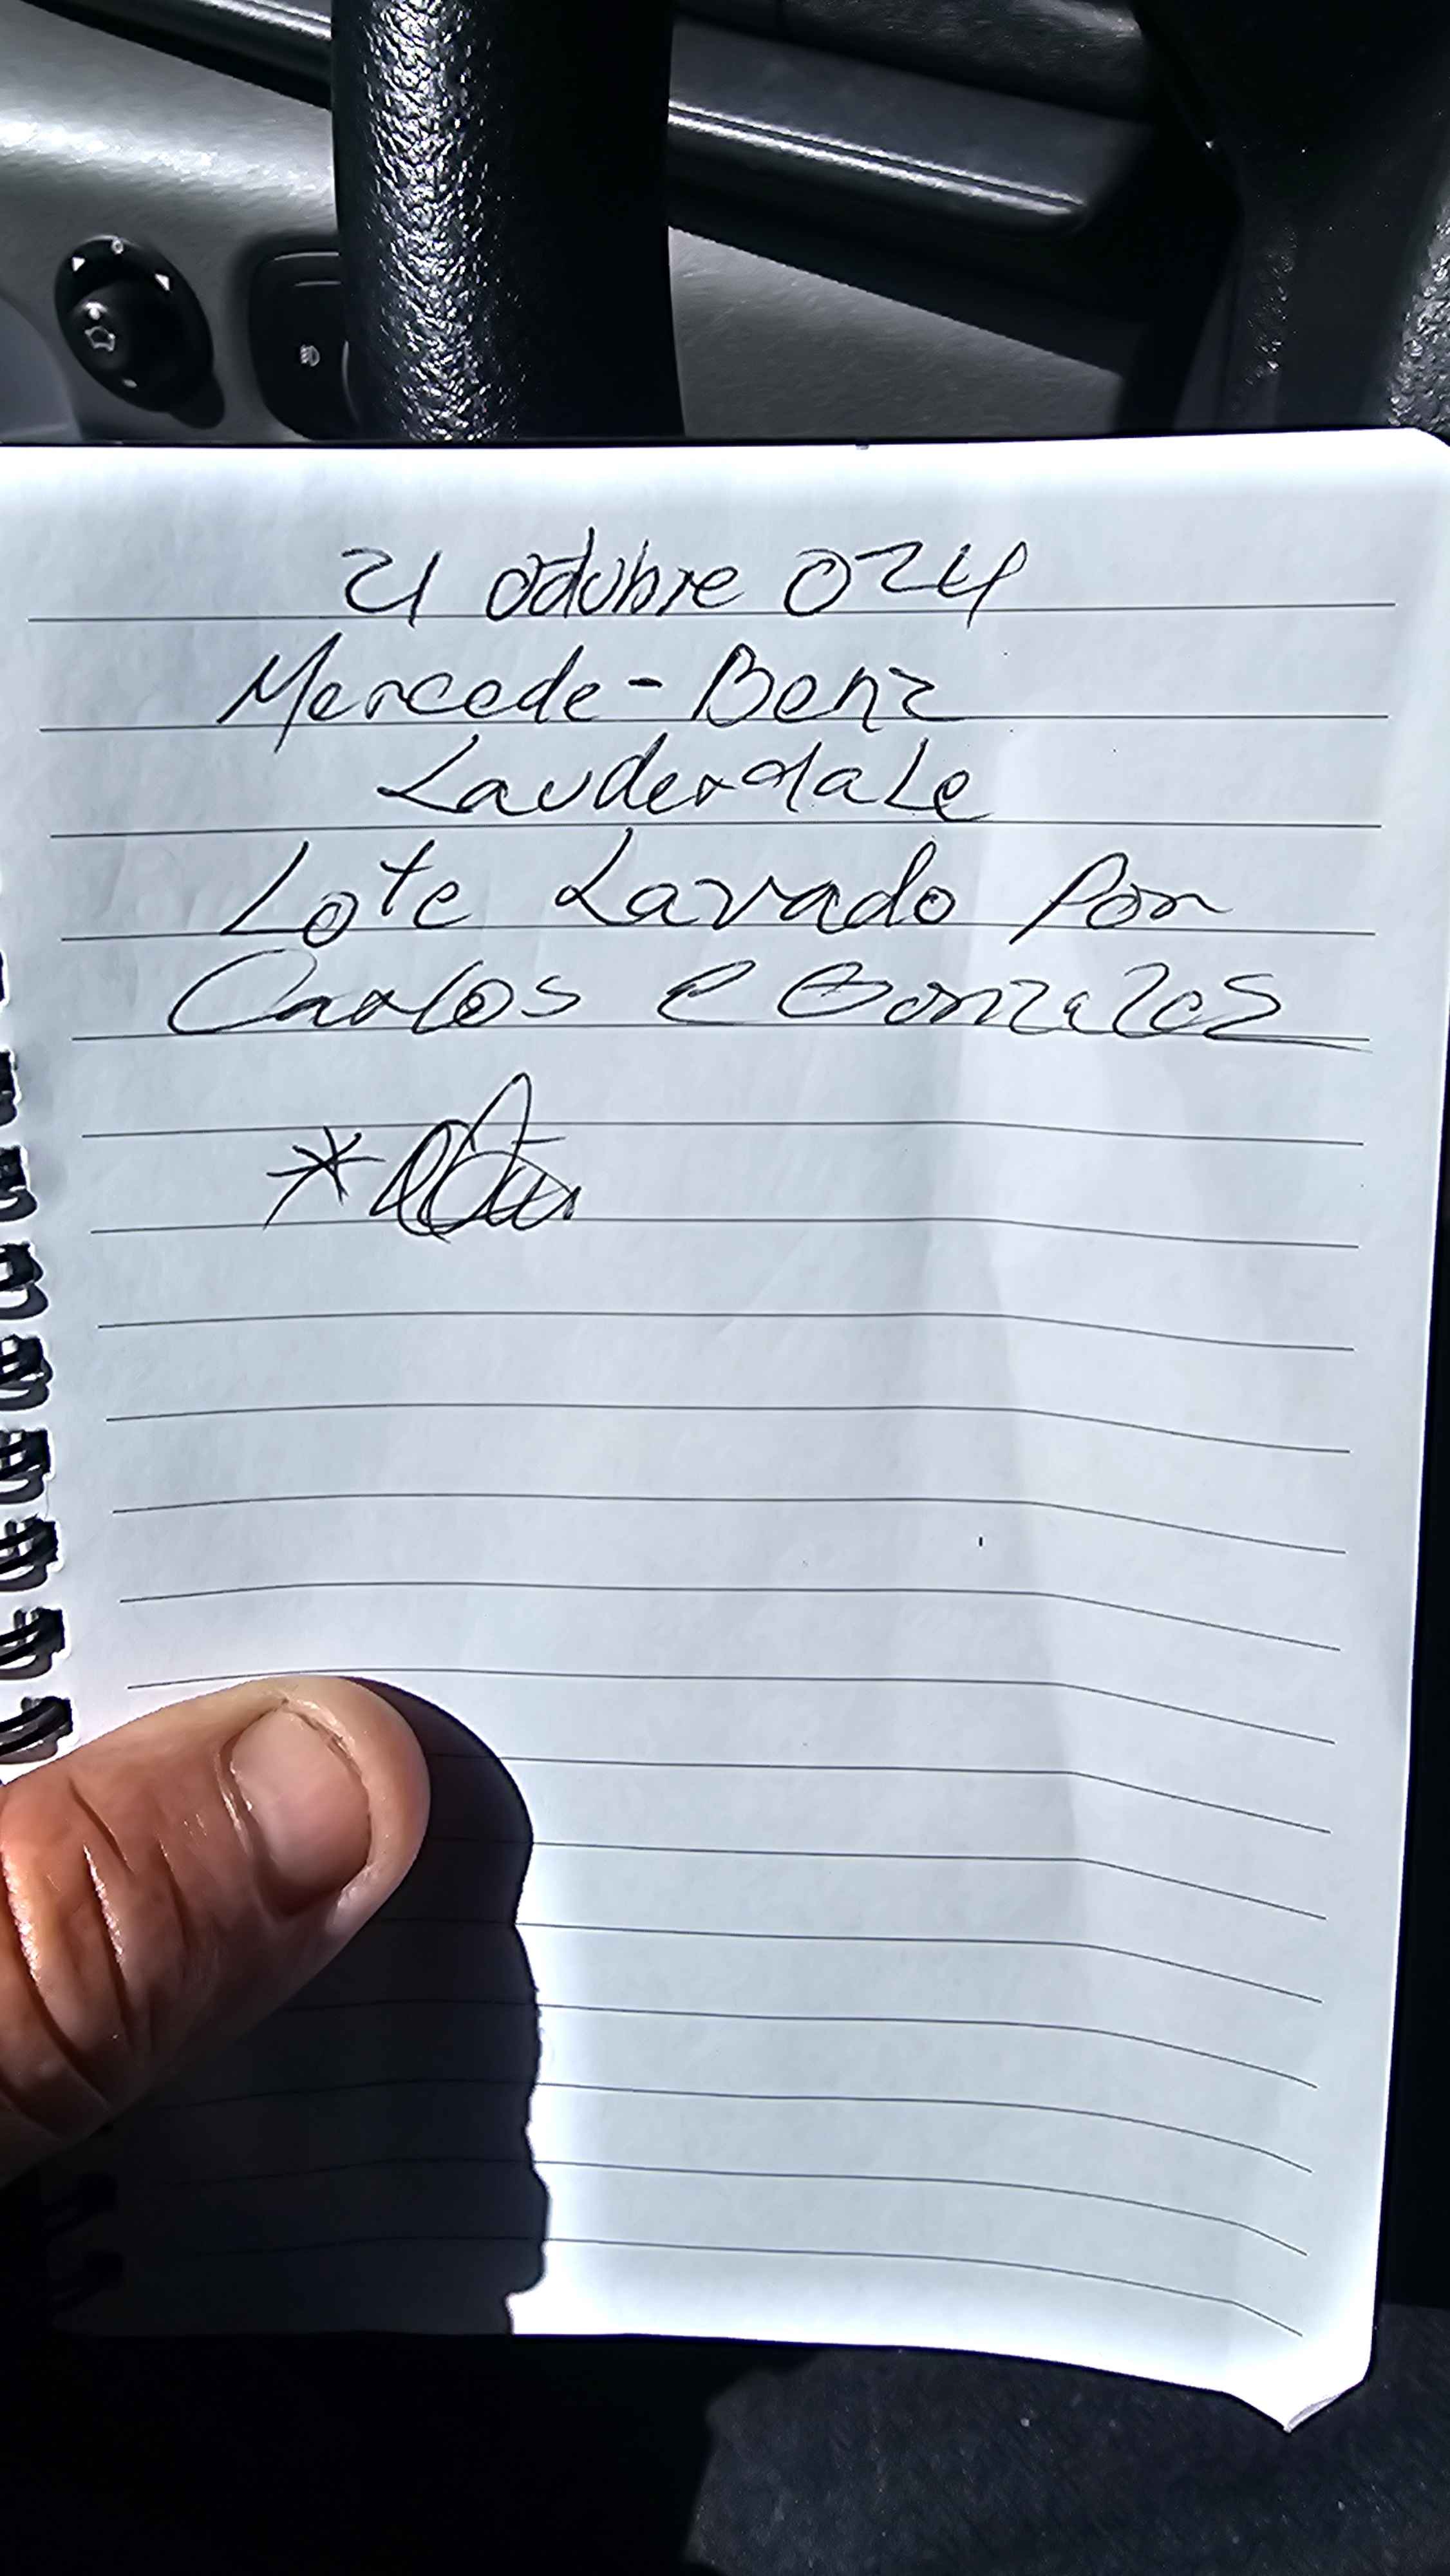 21 octubre 024
Mercede-Benz
Lauderdale
Lote Lavado Por
Carlos e Gonzales
*